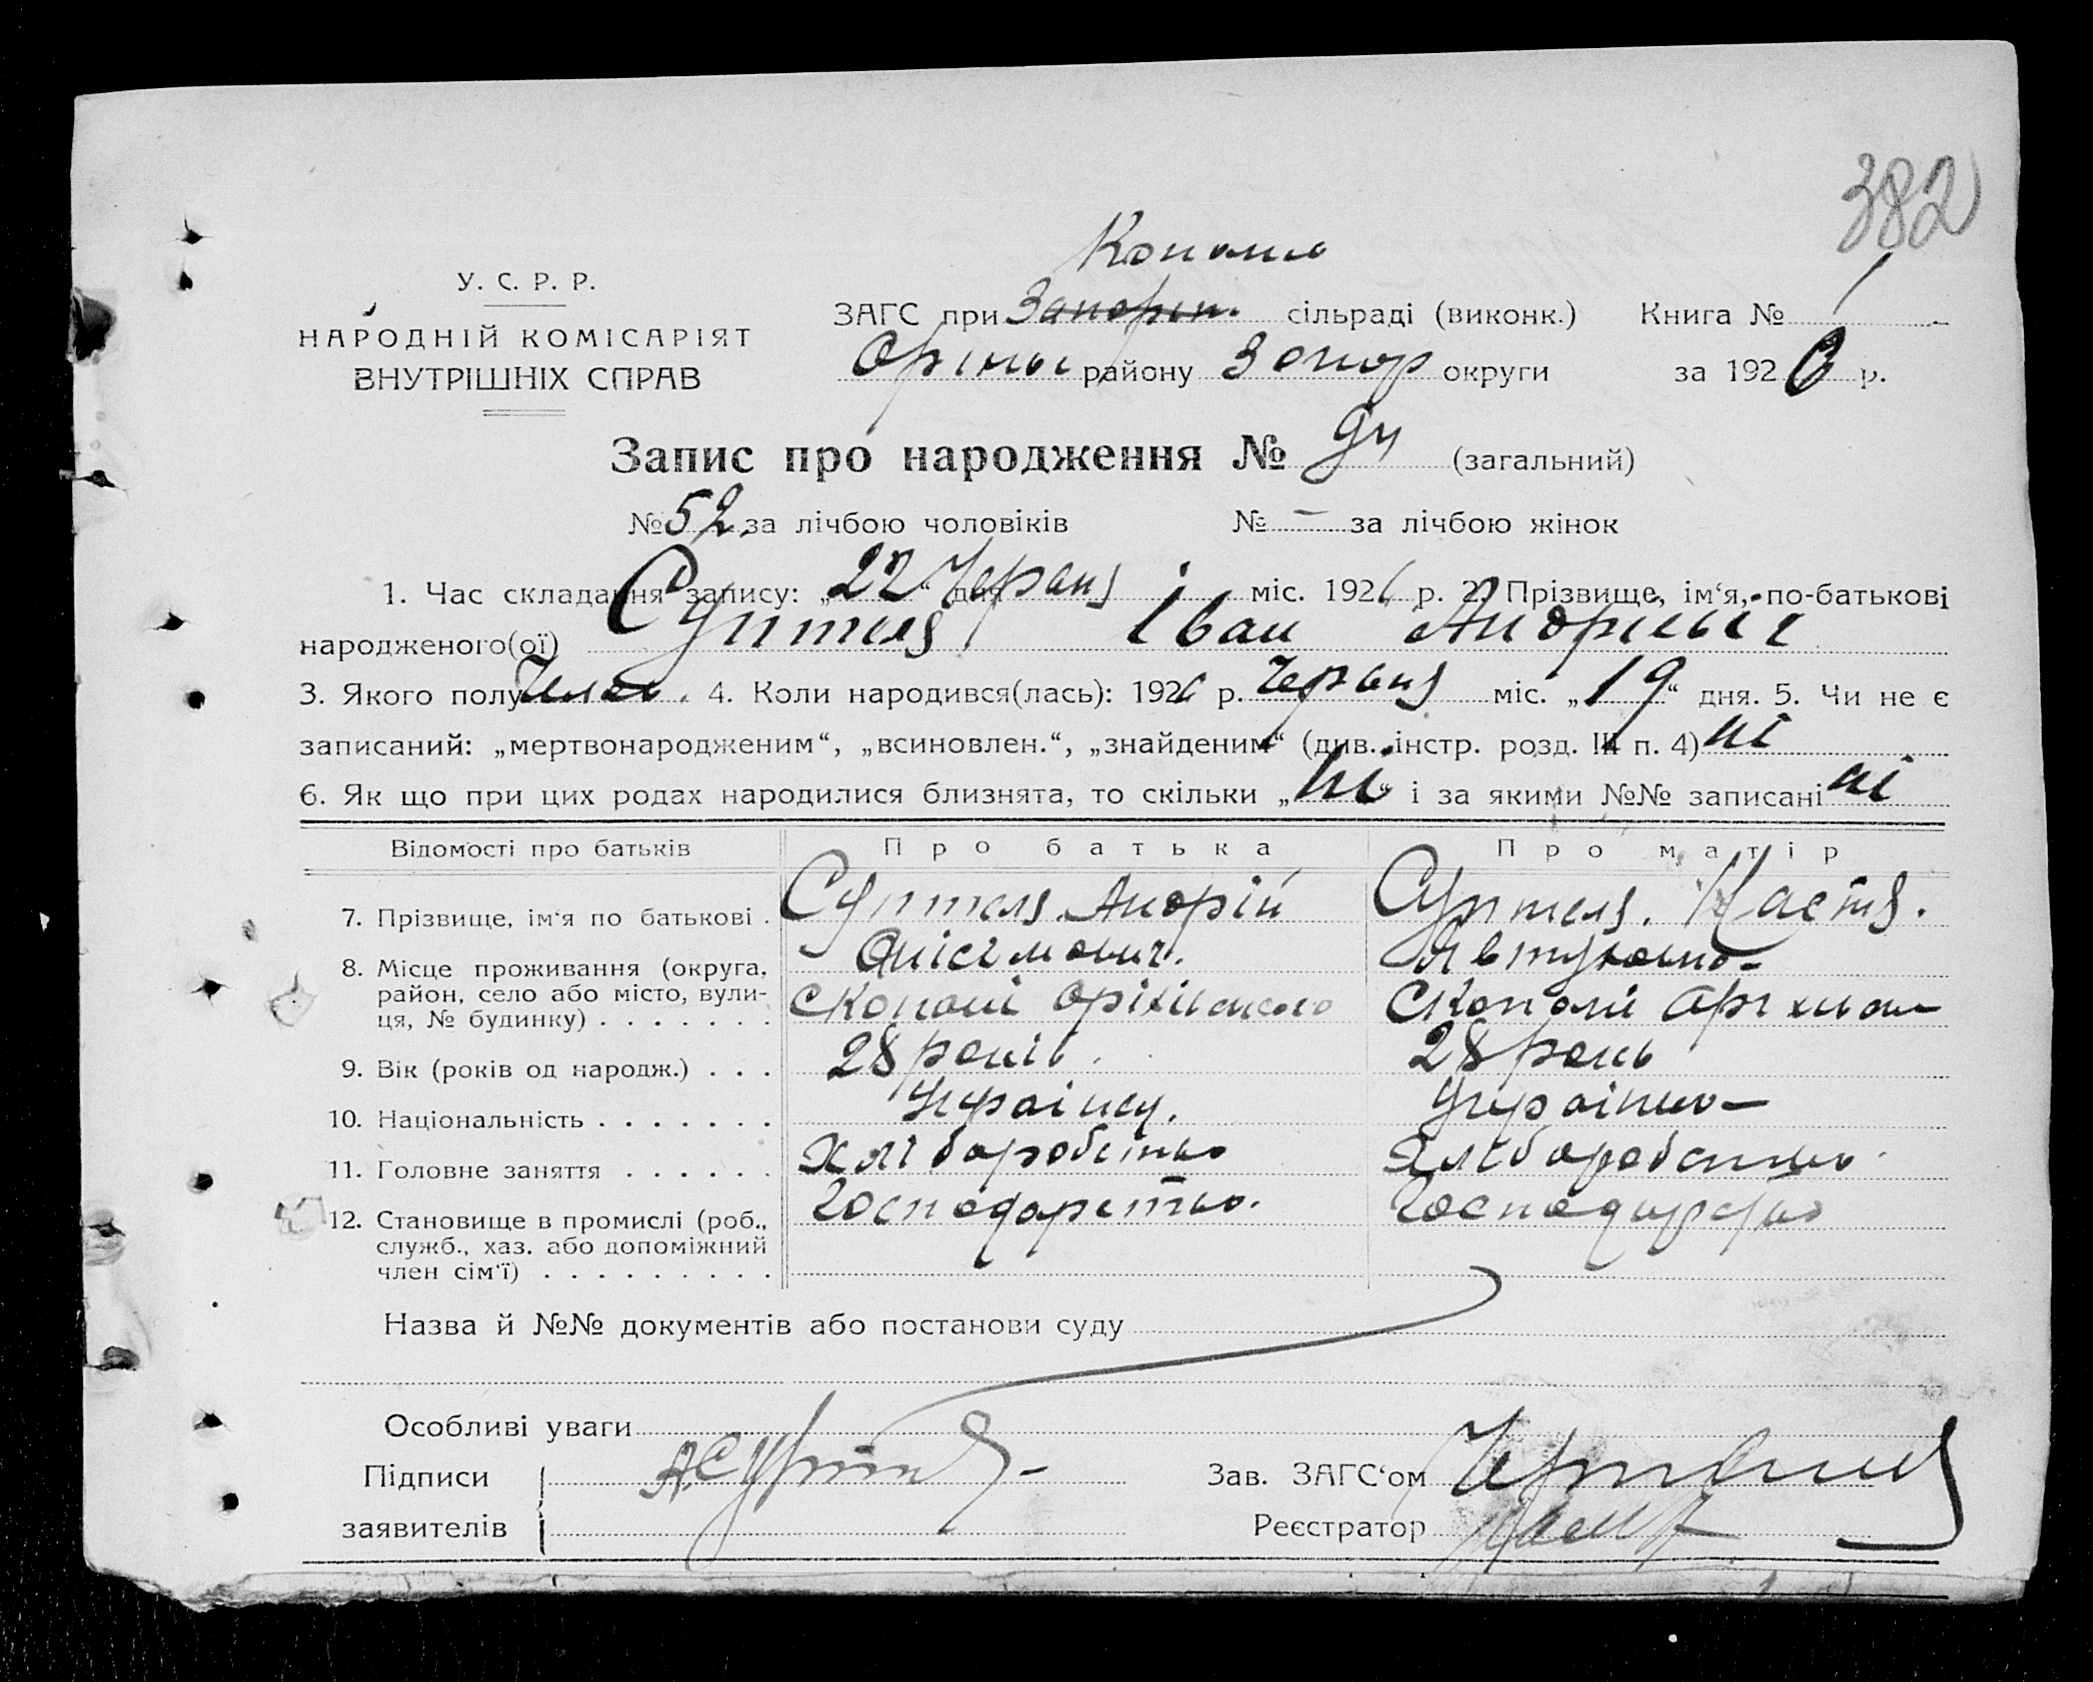 382
Копань
У. С. Р. Р.
НАРОДНІЙ КОМІСАРІЯТ
ВНУТРІШНІХ СПРАВ
ЗАГС при сільраді (виконк.) Книга №
району Запор округи за 1926 р.
Запис про народження № (загальний)
№ 52 за лічбою чоловіків № — за лічбою жінок
1. Час складання запису: „22“ дня Червня міс. 1926 р. 2. Прізвище, ім‘я, по-батькові
народженого(ої) Іван Андрієвіч
3. Якого полу 4. Коли народився(лась): 1926 р. Червня міс. „19“ дня. 5. Чи не є
записаний: „мертвонародженим“, „всиновлен.“, „знайденим“ (див. інстр. розд. III п. 4) ні
6. Як що при цих родах народилися близнята, то скільки „ні“ і за якими №№ записані ні
Відомості про батьків Про батька Про матір
7. Прізвище, ім‘я по батькові . Андрій Настя.
Онісімович.
8. Місце проживання (округа,
район, село або місто, вули-
ця, № будинку) . . . . . . . Оріхівського
9. Вік (років од народж.) . . . 28 років. 28 років
10. Національність . . . . . . . Українец. Українка
11. Головне заняття . . . . . . Хліборобство Хліборобство
12. Становище в промислі (роб., Господарство. Господарство
служб., хаз. або допоміжний
член сім‘ї) . . . . . . . . .
Назва й №№ документів або постанови суду
Особливі уваги
Підписи Зав. ЗАГС‘ом
заявителів Реєстратор